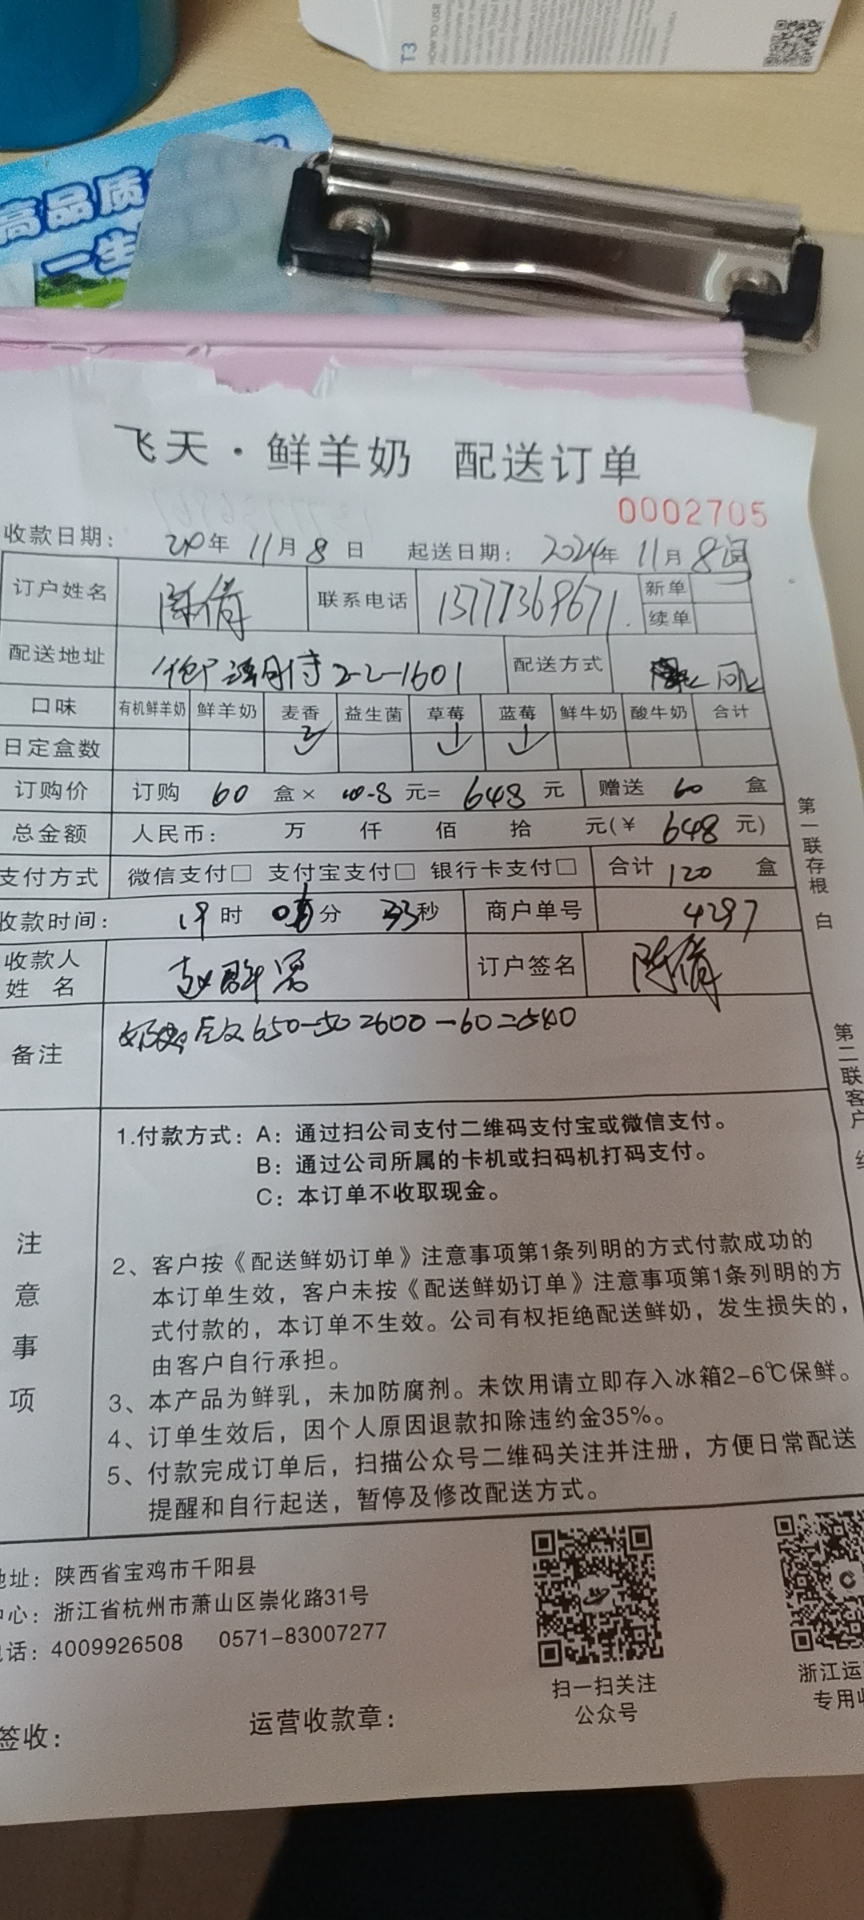 T3
HOW TO USE
高品质
一生
飞天·鲜羊奶 配送订单
0002705
收款日期： 年 11月 8 日 起送日期： 2024年 11月 8
订户姓名 陈倩 联系电话 13777369671 新单
续单
配送地址 2-2-1601 配送方式
口味 有机鲜羊奶 鲜羊奶 麦香 益生菌 草莓 蓝莓 鲜牛奶 酸牛奶 合计
日定盒数 2 1 1
订购价 订购 60 盒× 10.8 元= 648 元 赠送 60 盒
总金额 人民币： 万 仟 佰 拾 元(￥ 648 元)
支付方式 微信支付□ 支付宝支付□ 银行卡支付□ 合计 120 盒
收款时间： 19 时 分 33秒 商户单号 4297
收款人
姓 名 赵 订户签名 陈倩
备注 650-50=600-60=540
注意事项
1.付款方式：A：通过扫公司支付二维码支付宝或微信支付。
B：通过公司所属的卡机或扫码机打码支付。
C：本订单不收取现金。
2、客户按《配送鲜奶订单》注意事项第1条列明的方式付款成功的
本订单生效，客户未按《配送鲜奶订单》注意事项第1条列明的方
式付款的，本订单不生效。公司有权拒绝配送鲜奶，发生损失的，
由客户自行承担。
3、本产品为鲜乳，未加防腐剂。未饮用请立即存入冰箱2-6℃保鲜。
4、订单生效后，因个人原因退款扣除违约金35%。
5、付款完成订单后，扫描公众号二维码关注并注册，方便日常配送
提醒和自行起送，暂停及修改配送方式。
第一联存根 白
第二联客户
址：陕西省宝鸡市千阳县
心：浙江省杭州市萧山区崇化路31号
话：4009926508 0571-83007277
扫一扫关注
公众号
浙江运
专用收
签收： 运营收款章：